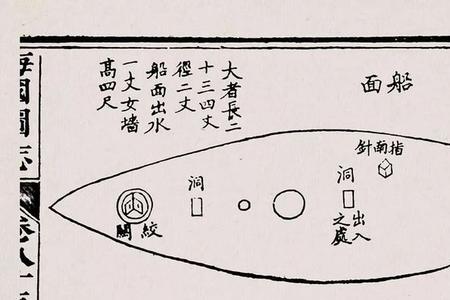 船面
大者長二
十三四丈
徑二丈
船面出水
一丈女墻
髙四尺
指南針
洞
出入
之處
洞
絞關
海國圖志
卷八十